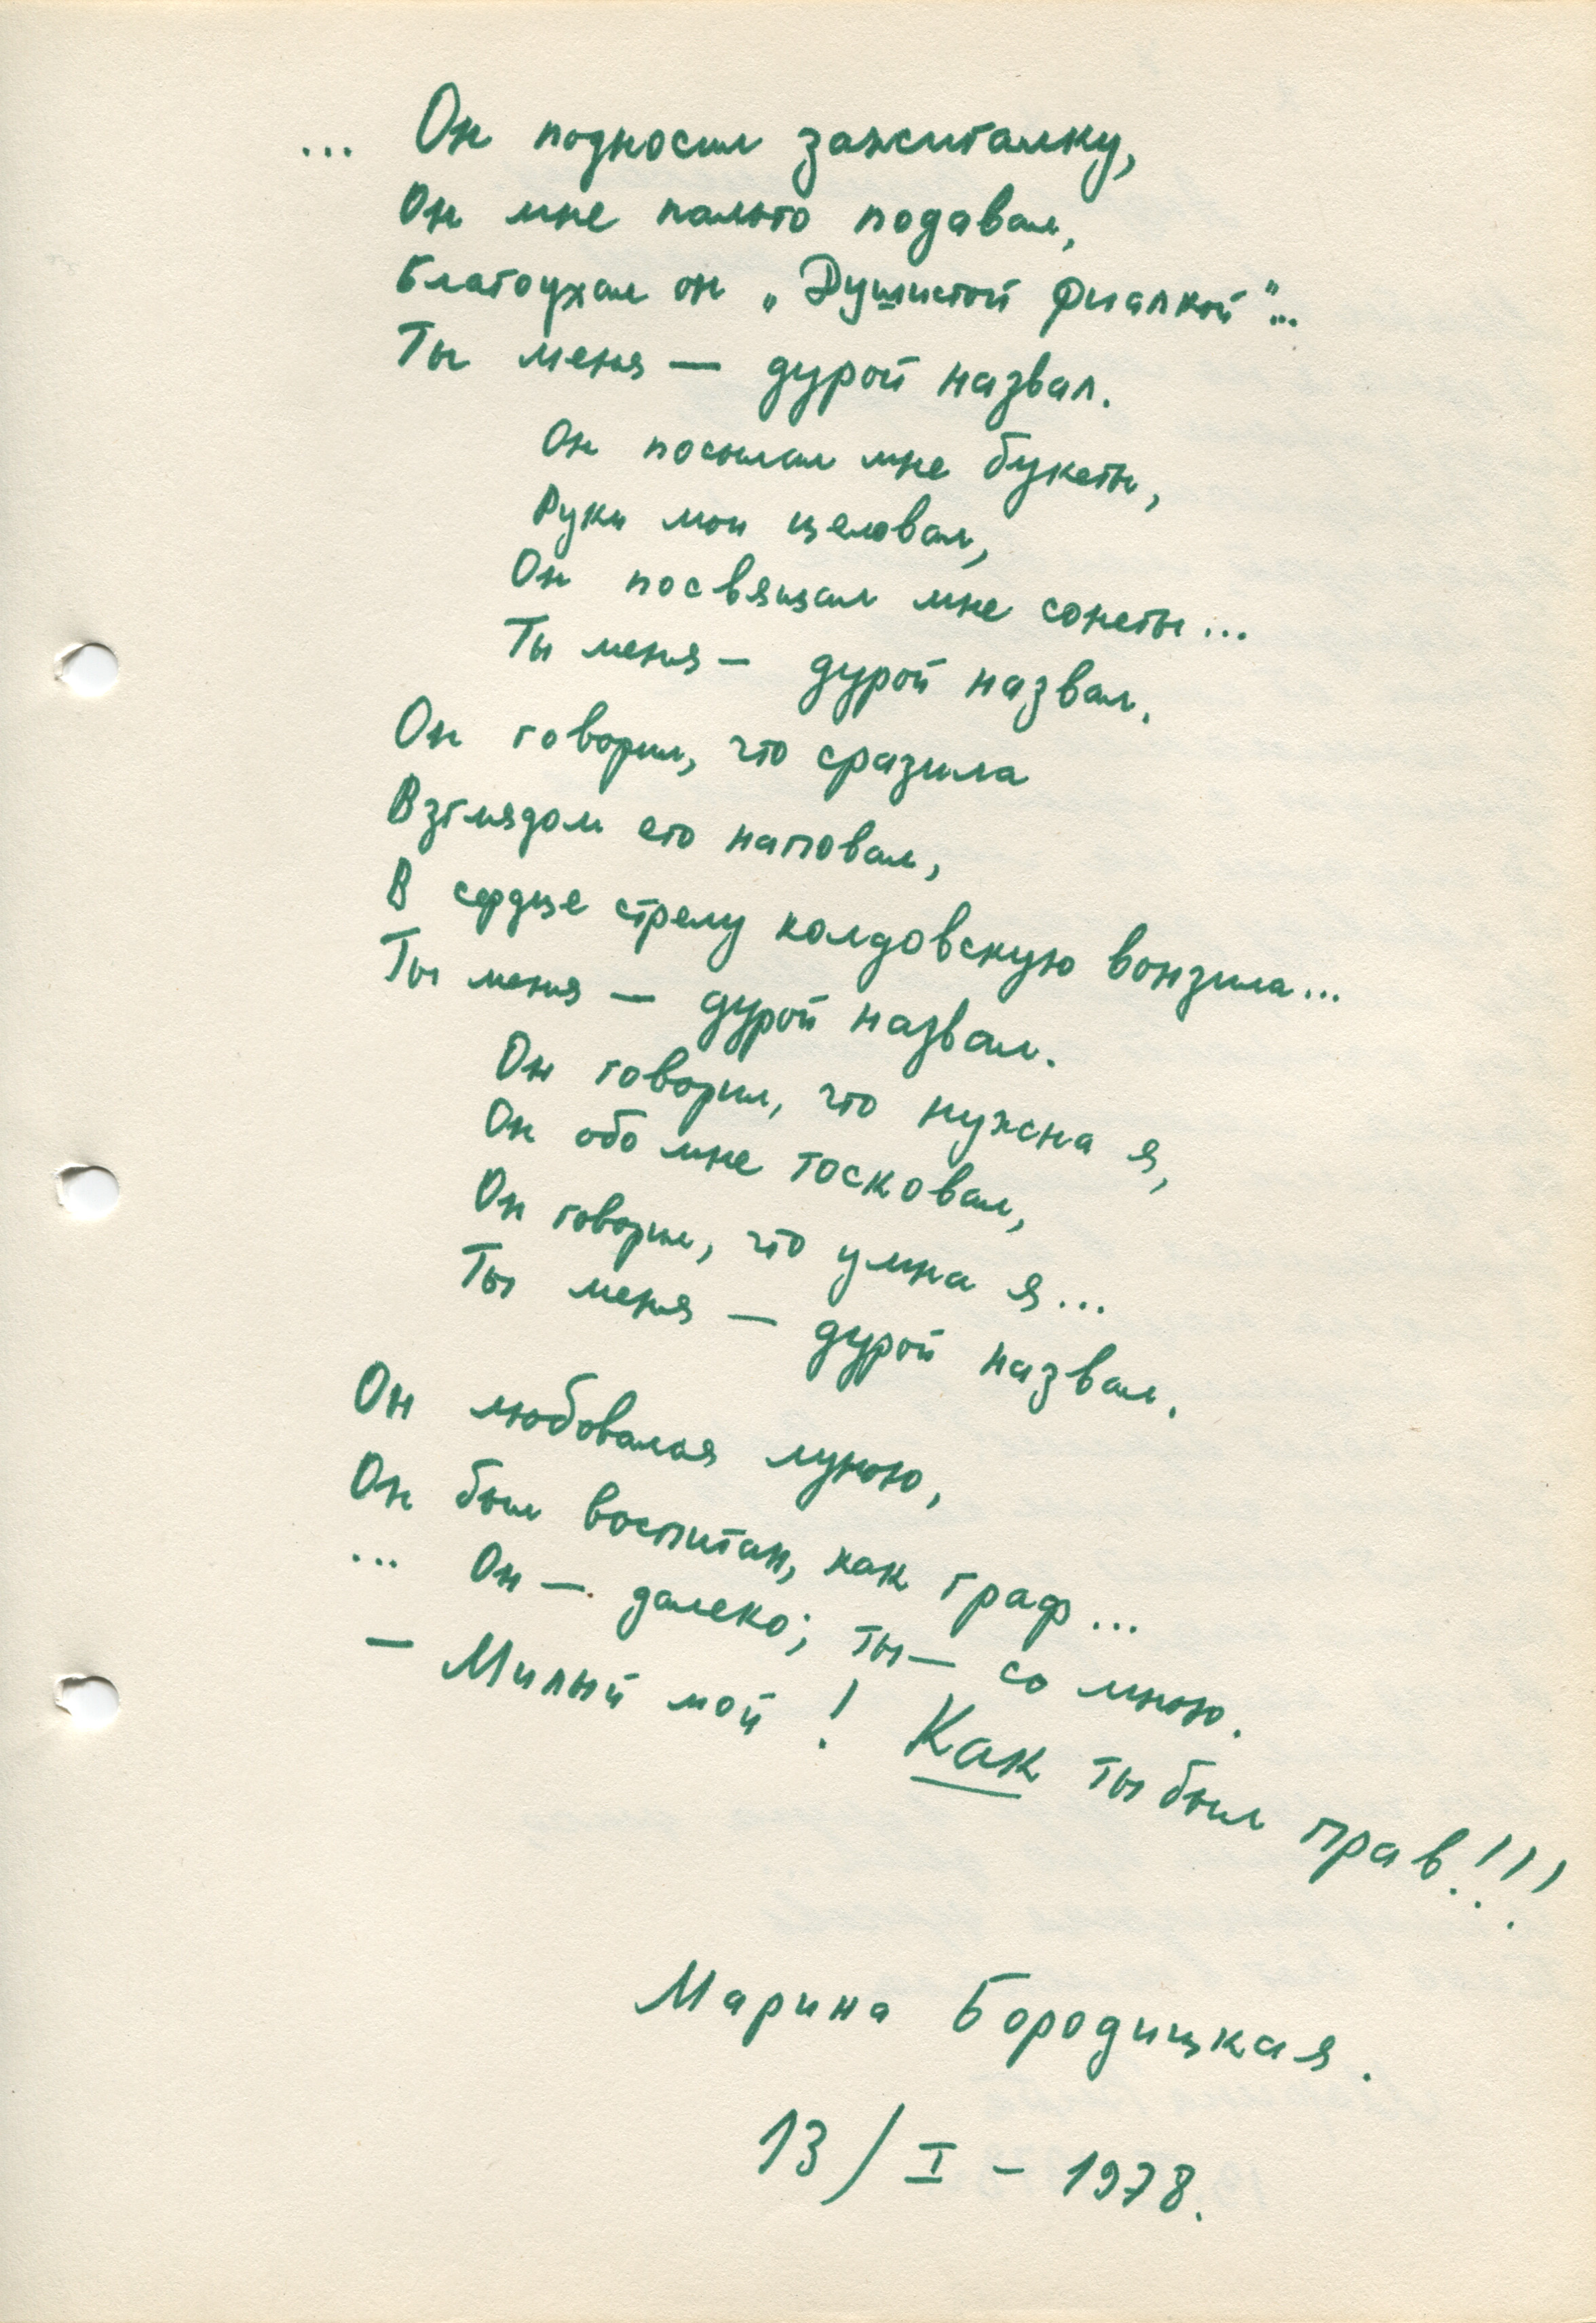 ... Он подносил зажигалку,
Он мне пальто подавал,
Благоухал он „Душистой фиалкой“...
Ты меня — дурой назвал.
Он посылал мне букеты,
Руки мои целовал,
Он посвящал мне сонеты...
Ты меня — дурой назвал.
Он говорил, что сразила
Взглядом его наповал,
В сердце стрелу колдовскую вонзила...
Ты меня — дурой назвал.
Он говорил, что нужна я,
Он обо мне тосковал,
Он говорил, что умна я...
Ты меня — дурой назвал.
Он любовался луною,
Он был воспитан, как граф...
... Он — далеко; ты — со мною.
— Милый мой! Как ты был прав!!!
Марина Бородицкая.
13/I – 1978.